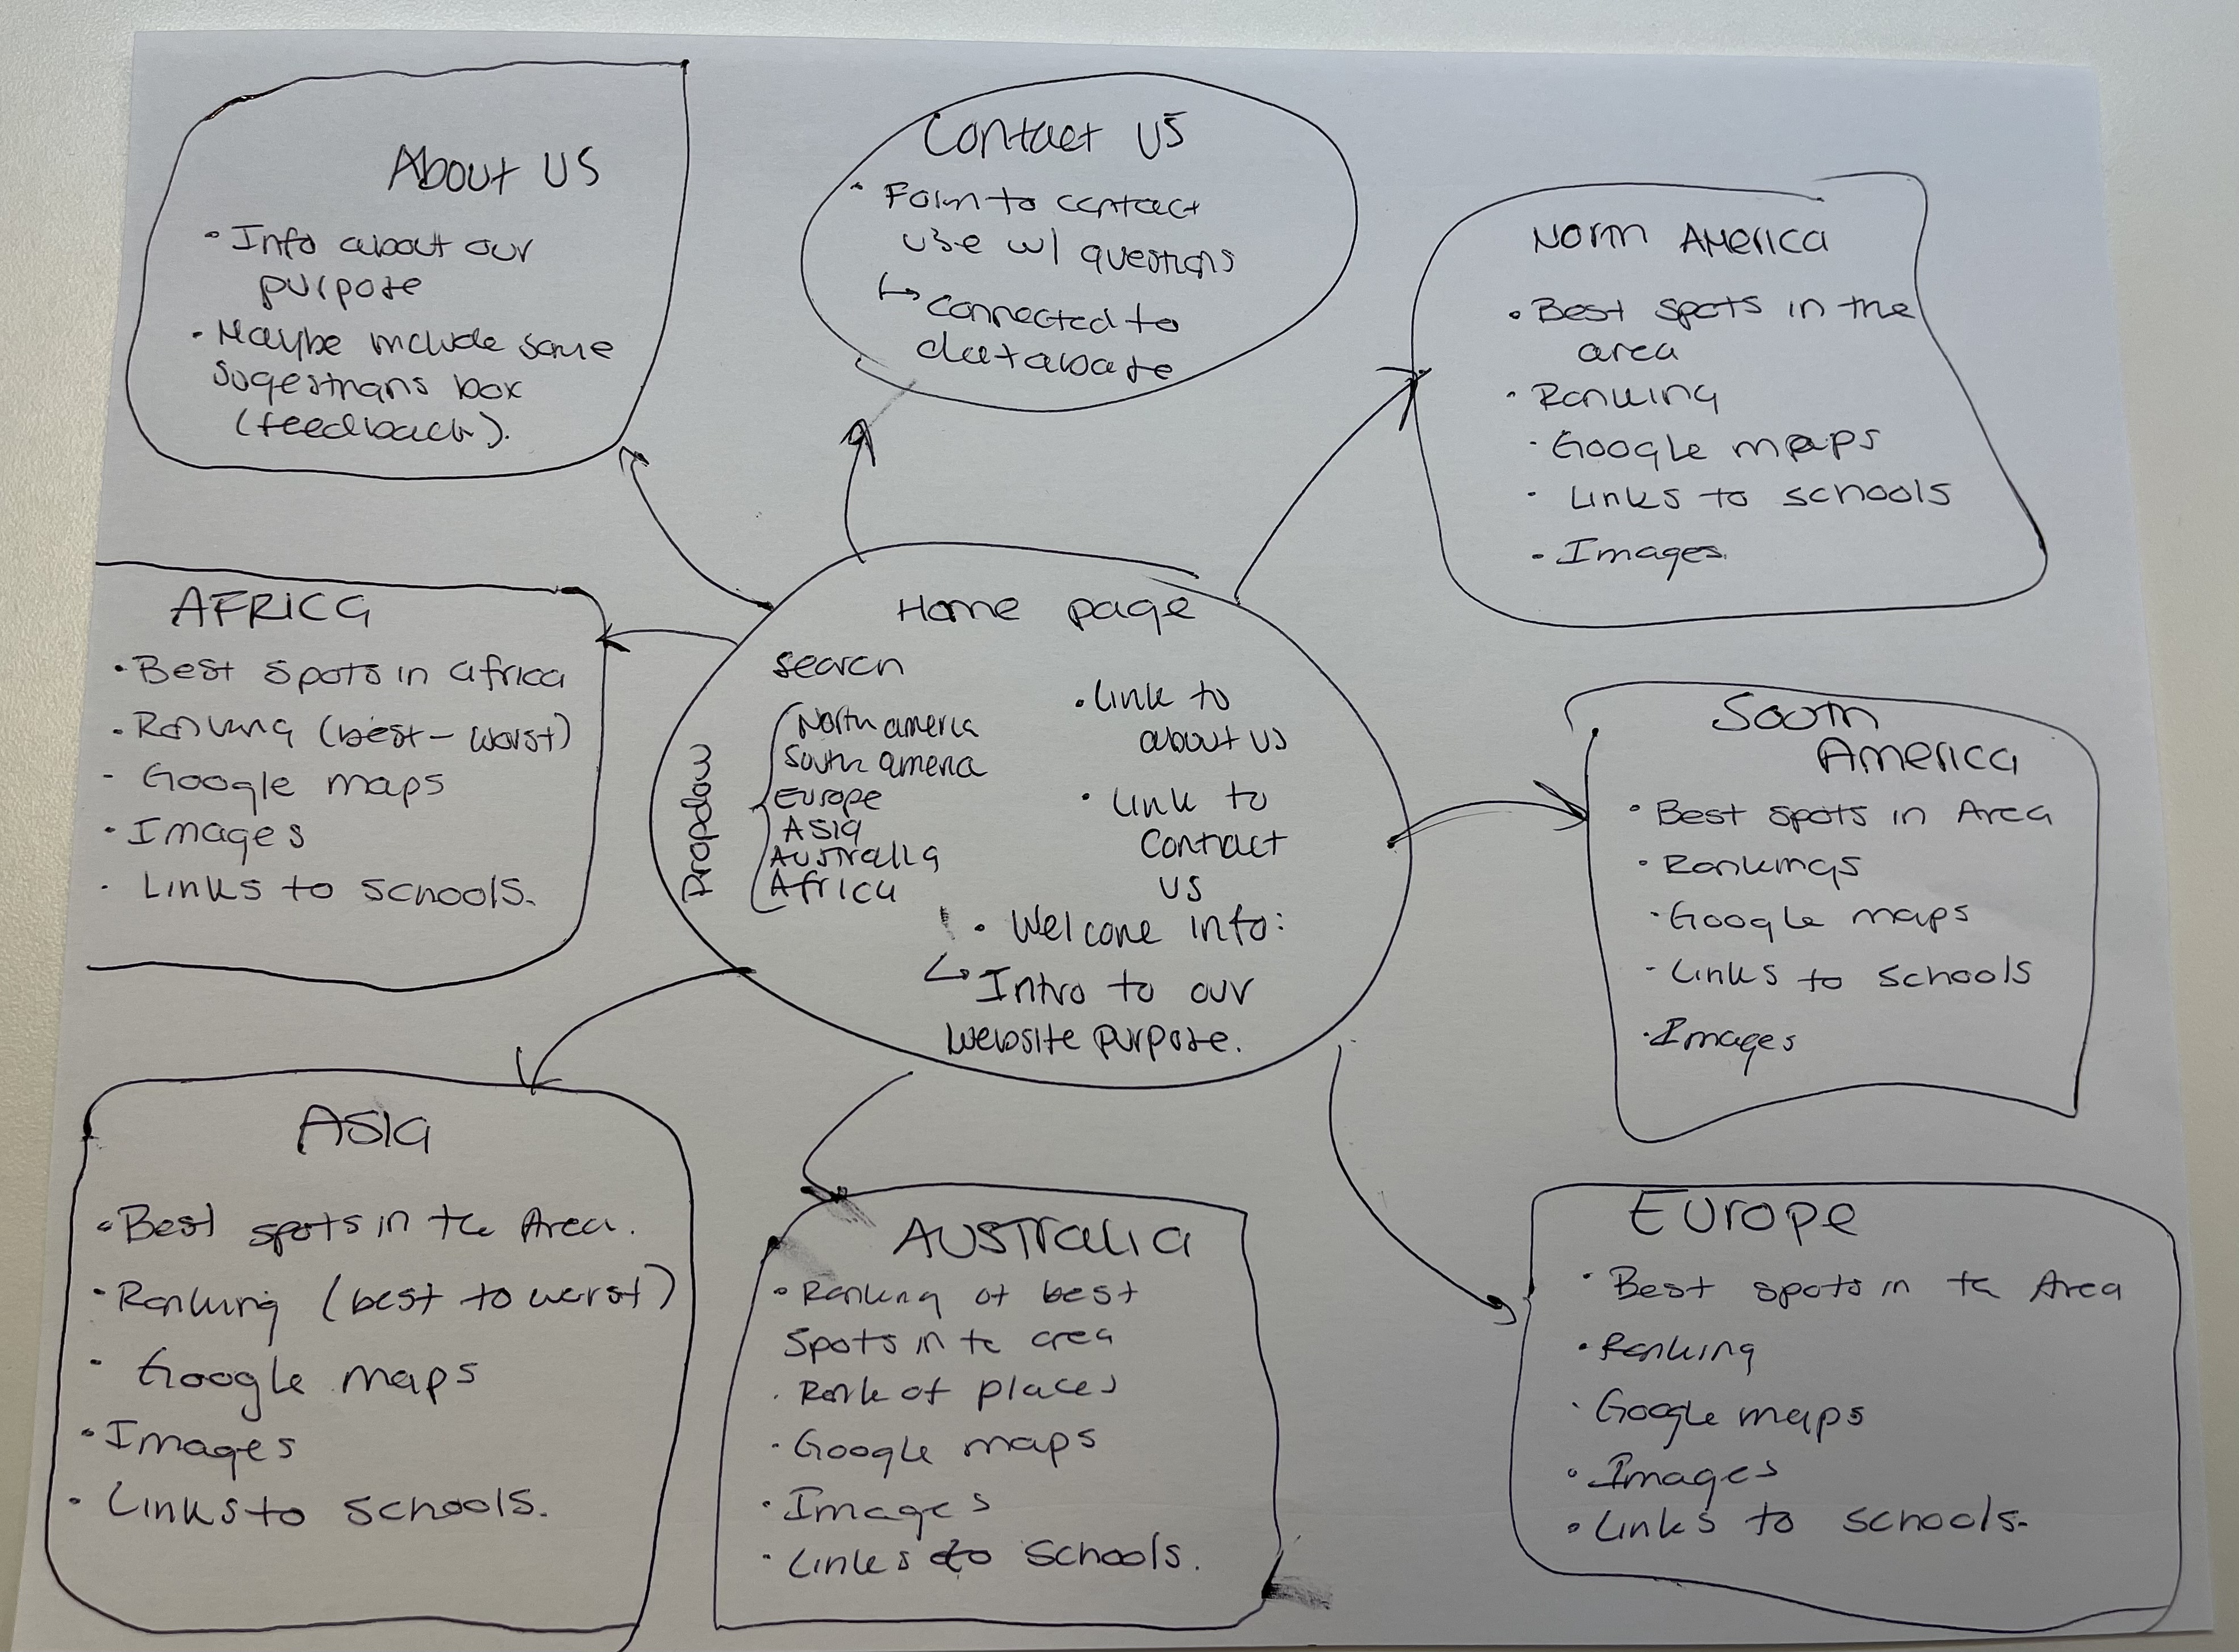 About US
• Info about our
purpose
• Maybe include some
sugestions box
(feedback).
Contact US
• Form to contact
use w/ questions
↳ connected to
database
North America
• Best spots in the
area
• Ranking
• Google maps
• Links to schools
- Images
AFRICA
• Best spots in africa
• Ranking (best - worst)
- Google maps
• Images
• Links to schools.
Home page
search
Dropdow
North america
South america
Europe
Asia
Australia
Africa
• Link to
about us
• Link to
Contract
us
• Welcome info:
↳ Intro to our
website purpose.
South
America
• Best spots in Area
• Rankings
• Google maps
- Links to schools
• Images
Asia
• Best spots in the Area.
• Ranking (best to worst)
- Google maps
• Images
• Links to schools.
AUSTRalia
• Ranking of best
spots in te area
• Rank of places
• Google maps
• Images
• Links to schools.
Europe
• Best spots in te Area
• Ranking
• Google maps
• Images
• Links to schools.